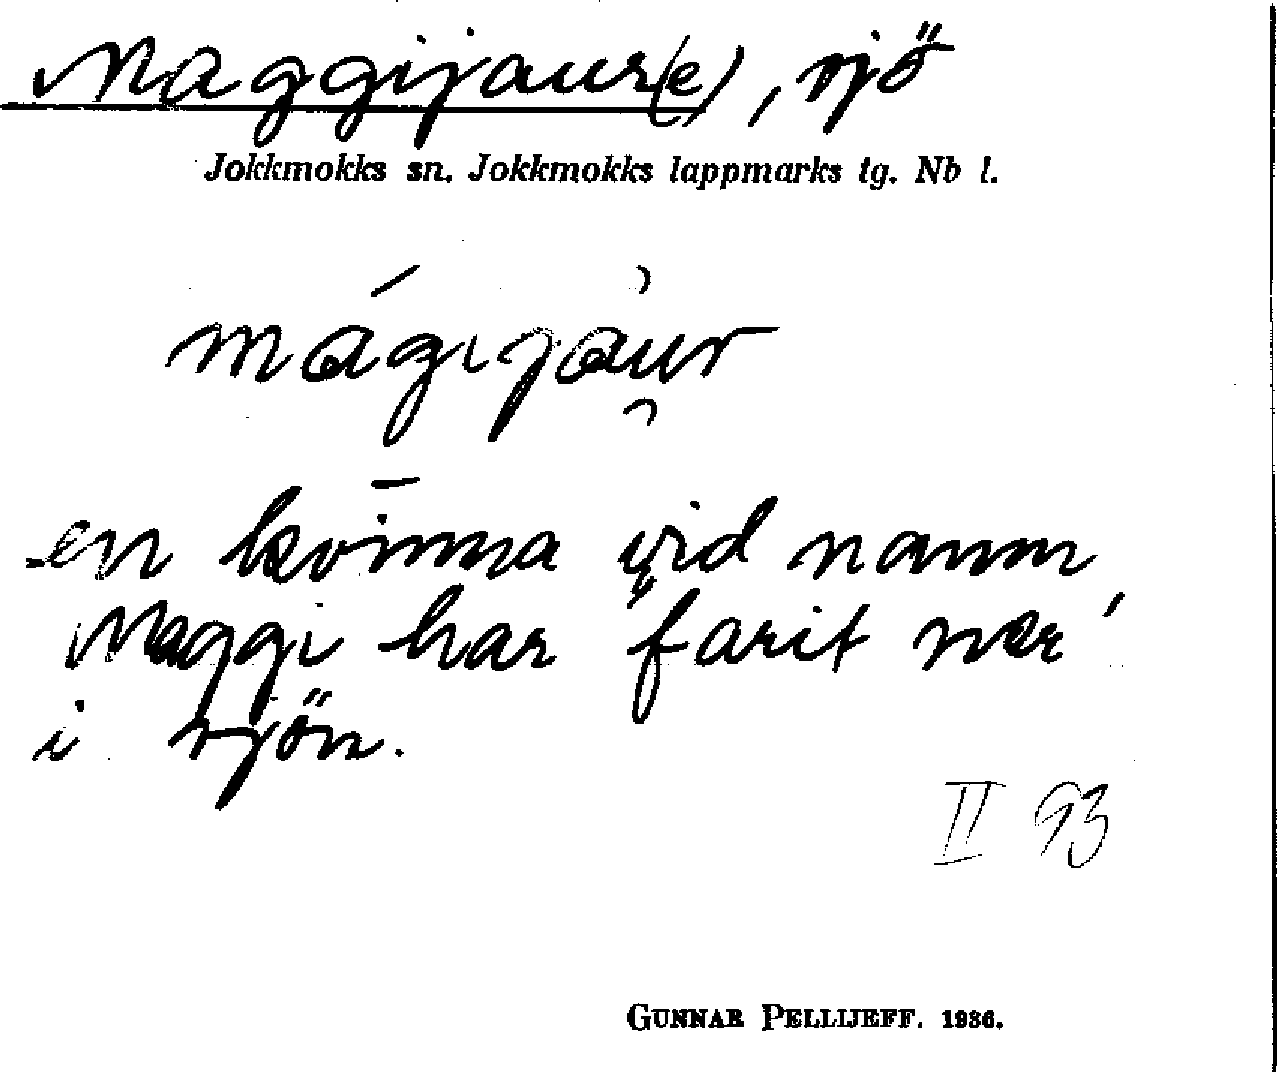 Maggijaur(e), sjö
Jokkmokks sn. Jokkmokks lappmarks tg. Nb l.
mágijau̯r
en kvinna vid namn
Maggi har farit ner
i sjön.
II 93
GUNNAR PELLIJEFF. 1936.